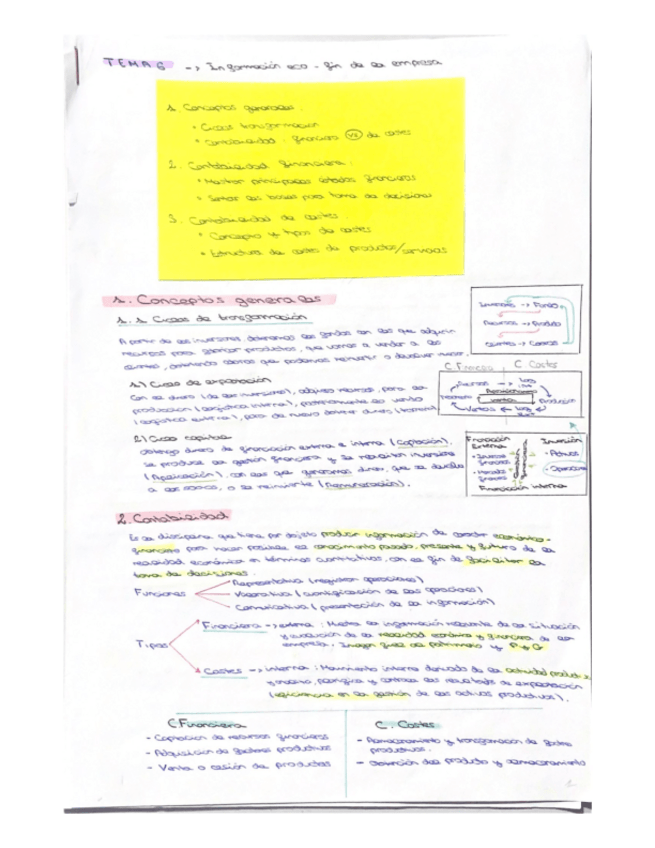 TEMA 6 -> Información eco - fin de la empresa
1. Conceptos generales.
• Ciclos transformación
• Contabilidad : financiera VS de costes
2. Contabilidad financiera :
• Mostrar principales estados financieros
• Sentar las bases para toma de decisiones
3. Contabilidad de costes.
• Concepto y tipos de costes
• Estructura de costes de productos/servicios
1. Conceptos generales
1.1 Ciclos de transformación
A partir de los inversores obtenemos los fondos con los que adquirir
recursos para generar productos, que vamos a vender a los
clientes, obteniendo cobros que podemos reinvertir o devolver
Inversores -> Fondos
Recursos -> Producto
Clientes -> Cobros
1) Ciclo de explotación
Con el dinero (de los inversores), adquiero recursos, para la
producción (logística interna), posteriormente se vende
(logística externa), para de nuevo obtener dinero
C. Financiera C. Costes
Recursos -> Log.
Producción
Ventas <- Log.
2) Ciclo capital
Obtengo dinero de financiación externa e interna (Captación).
Se produce la gestión financiera y se realizan inversiones
(Aplicación), con las que generamos dinero, que se devuelve
a los socios, o se reinvierte (Remuneración).
Financiación Externa
Inversión
• Activos
Gestión financiera
Financiación interna
2. Contabilidad
Es la disciplina que tiene por objeto producir información de carácter económico-
financiero para hacer posible el conocimiento pasado, presente y futuro de la
realidad económica en términos cuantitativos, con el fin de facilitar la
toma de decisiones.
Funciones
Representativa (registrar operaciones)
Valorativa (cuantificación de las operaciones)
Comunicativa (presentación de la información)
Tipos
Financiera -> externa : Muestra la información relevante de la situación
y evolución de la realidad económica y financiera de la
empresa. Imagen fiel de patrimonio y P y G
Costes -> interna : Movimiento interno derivado de la actividad
y controla los resultados de explotación
(eficiencia en la gestión de los activos productivos).
C. Financiera
- Captación de recursos financieros
- Adquisición de factores productivos
- Venta o cesión de productos
C. Costes
- Almacenamiento y transformación de factores
productivos.
- Obtención del producto y almacenamiento